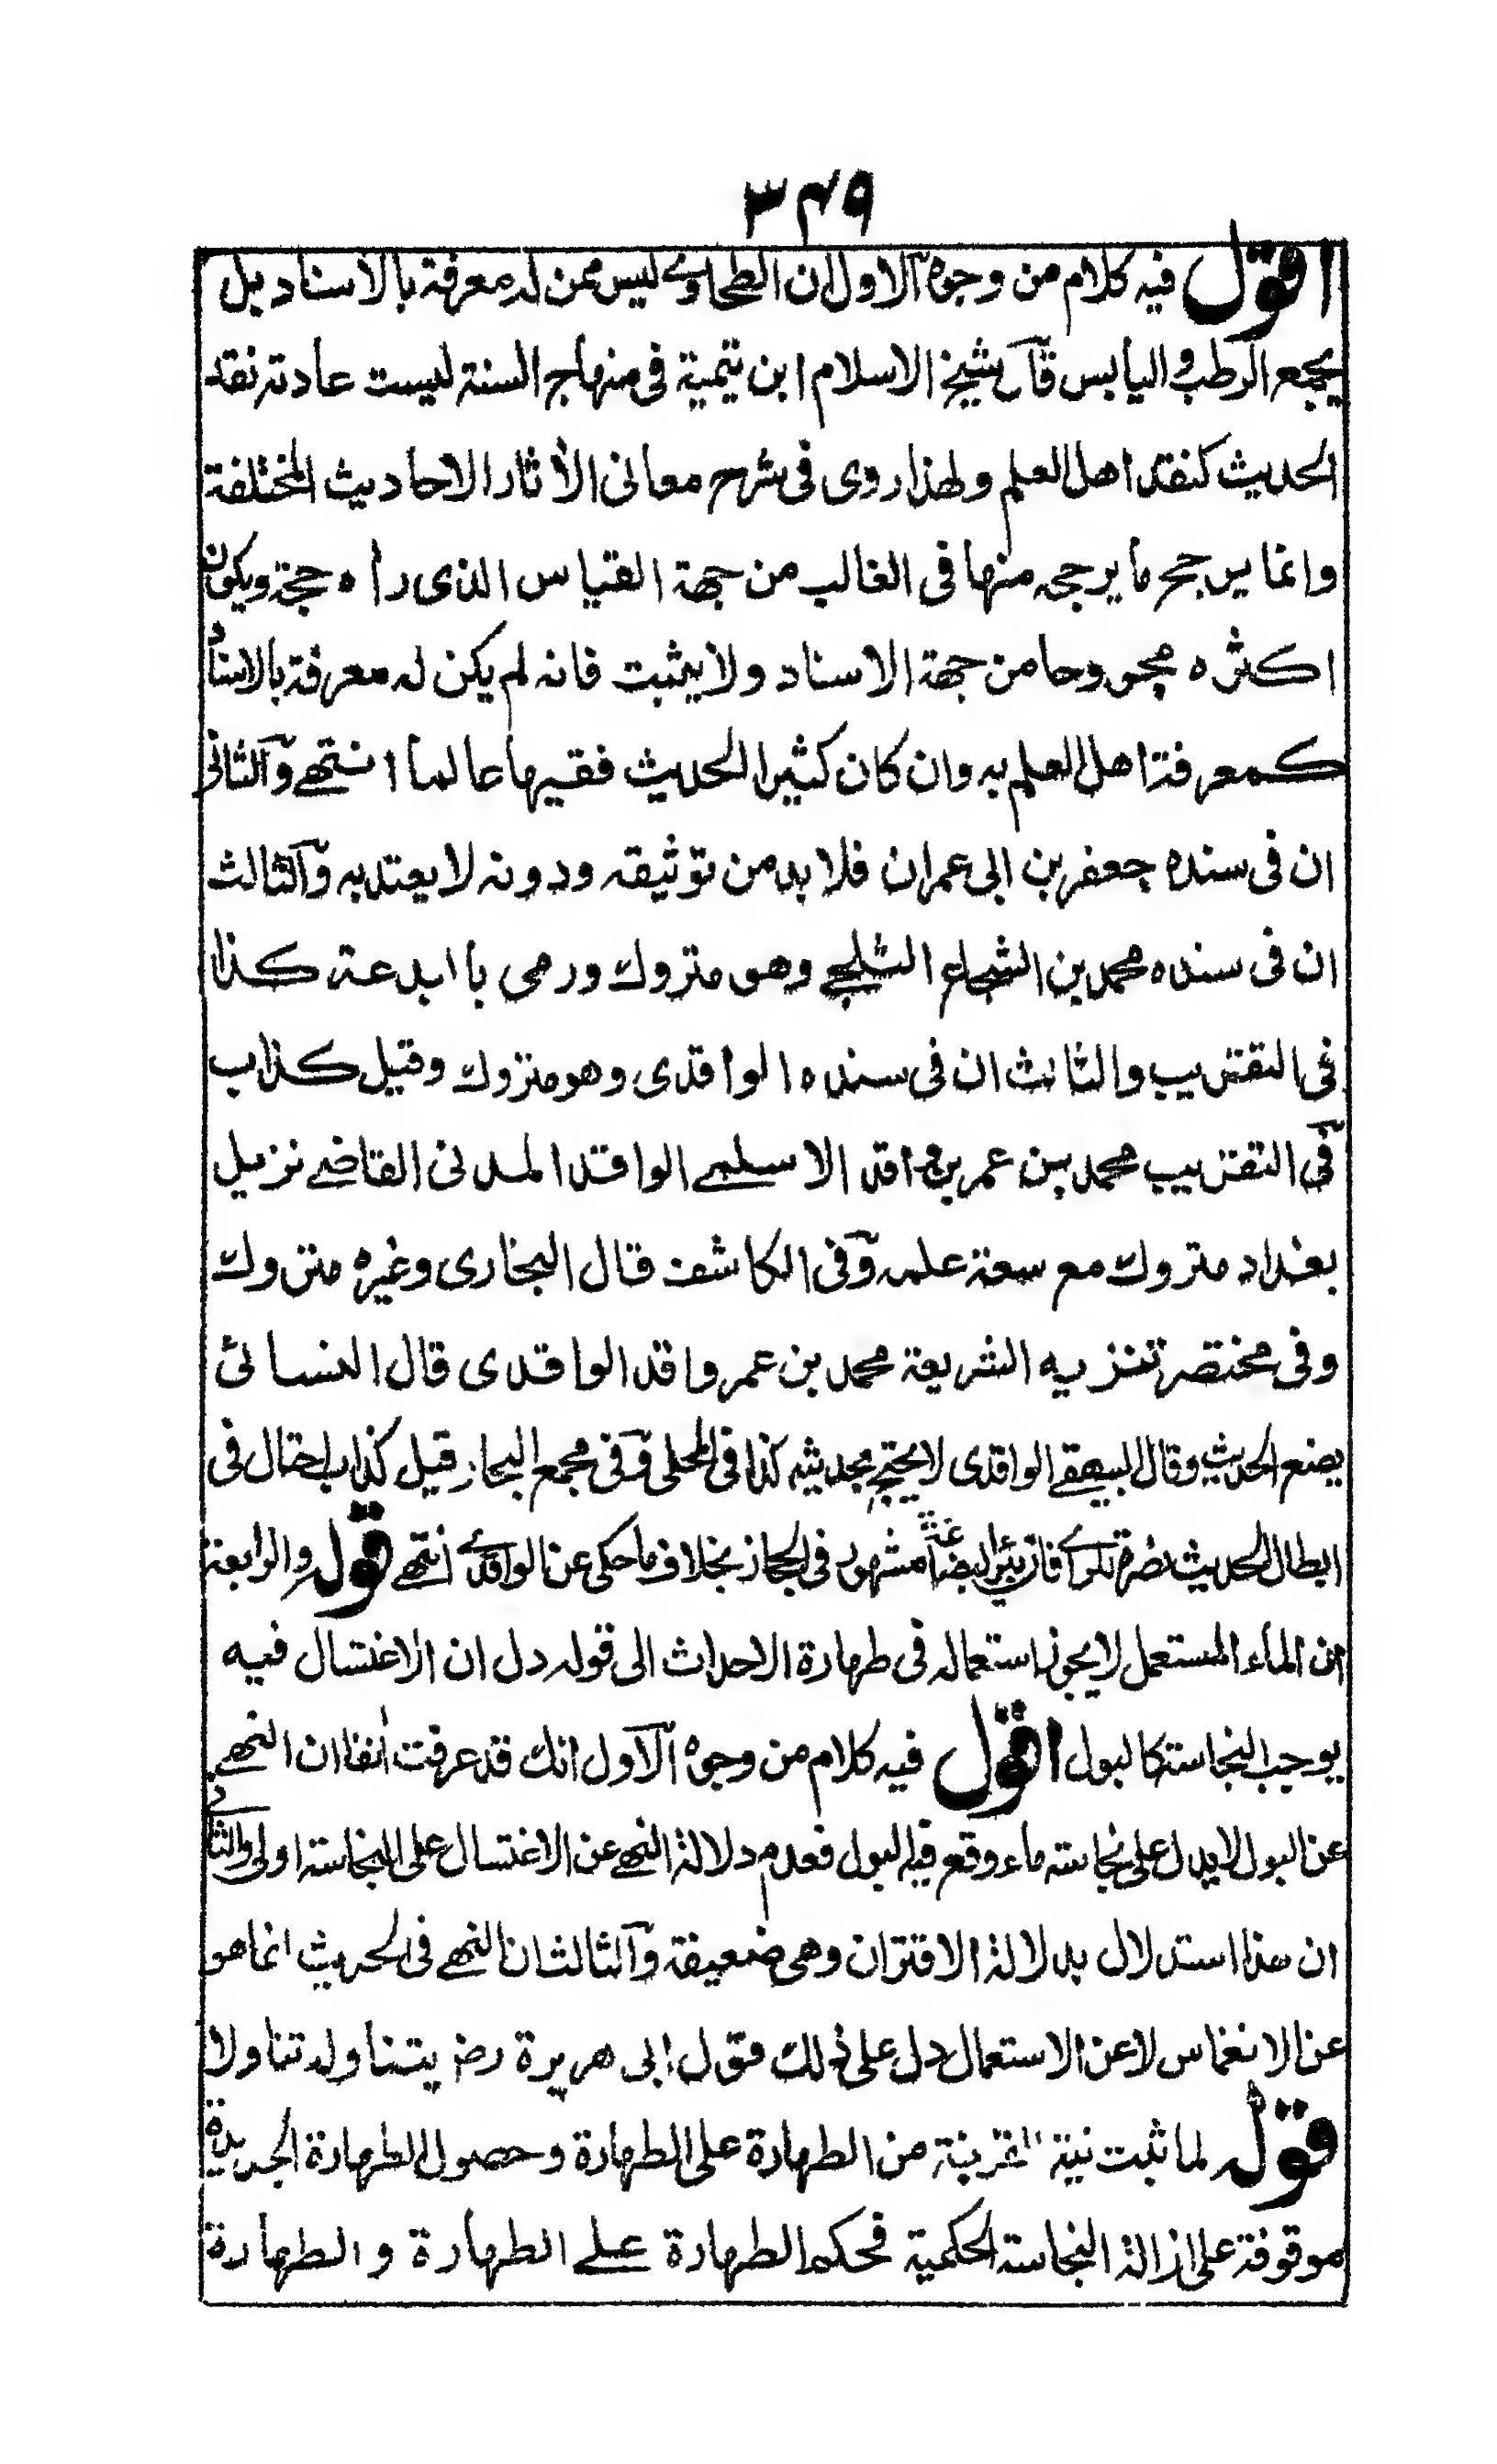 ٣٤٩
اقول فيه كلام من وجوه الاول ان الطحاوي ليس ممن له معرفة بالاسناد بل
يجمع الرطب و اليابس قال شيخ الاسلام ابن تيمية فى منهاج السنة ليست عادته نقد
الحديث كنقد اهل العلم ولهذا روى فى شرح معانى الأثار الاحاديث المختلفة
وانما يرجح ما يرجحه منها فى الغالب من جهة القياس الذى رأه حجة ويكون
اكثره مجروحا من جهة الاسناد ولا يثبت فانه لم يكن له معرفة بالاسناد
كمعرفة اهل العلم به وان كان كثير الحديث فقيها عالما انتهے والثانى
ان فى سنده جعفر بن ابى عمران فلا بد من توثيقه ودونه لا يعتد به والثالث
ان فى سنده محمد بن الشجاع الثلجے وهو متروك ورمى با ابدعة كذا
فى التقريب والثالث ان فى سنده الواقدى وهو متروك وقيل كذاب
فى التقريب محمد بن عمر بن واقد الاسلمے الواقد المدنى القاضے نزيل
بغداد متروك مع سعة علمه وفى الكاشف قال البخارى وغيره متروك
وفى مختصر تنزيه الشريعة محمد بن عمر واقد الواقدى قال النسائى
يضع الحديث وقال البيهقے الواقدى لا يحتج بحديثه كذا فى المحلى وفى مجمع البحار قيل كذاب احتال فى
ابطال الحديث نصرة للراے فان بئر بضاعة مشهور فى الحجاز بخلاف ما حكى عن الواقدے انتهے قوله والرابعة
ان الماء المستعمل لا يجوز استعماله فى طهارة الاحداث الى قوله دل ان الاغتسال فيه
يوجب النجاسة كالبول اقول فيه كلام من وجوه الاول انك قد عرفت أنفا ان النهے
عن البول لا يدل على نجاسة ماء وقع فيه البول فعدم دلالة النهے عن الاغتسال على النجاسة اولى والثانے
ان هذا استدلال بدلالة الاقتران وهى ضعيفة والثالث ان النهے فى الحديث انما هو
عن الانغماس لا عن الاستعمال دل على ذلك قول ابى هريرة رض يتناوله تناولا
قوله لما ثبت نية القربة من الطهارة على الطهارة وحصول الطهارة الجديدة
موقوفة على ازالة النجاسة الحكمية فحكم الطهارة علے الطهارة و الطهارة